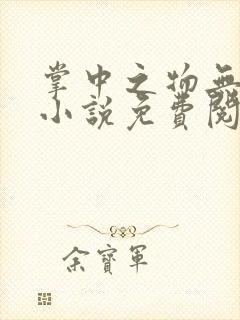 掌中之物無
小說免費閱
余寶軍